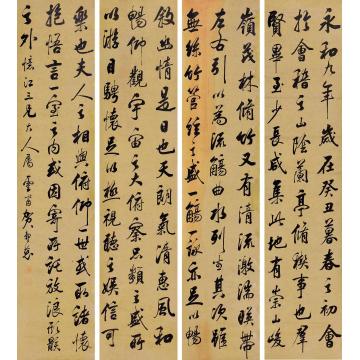 永和九年歲在癸丑暮春之初會
於會稽之山陰蘭亭脩稧事也羣
賢畢至少長咸集此地有崇山峻
嶺茂林脩竹又有清流激湍暎帶
左右引以為流觴曲水列坐其次雖
無絲竹管絃之盛一觴一詠亦足以暢
敘幽情是日也天朗氣清惠風和
暢仰觀宇宙之大俯察品類之盛所
以游目騁懷足以極視聽之娛信可
樂也夫人之相與俯仰一世或取諸懷
抱悟言一室之內或因寄所託放浪形骸
之外 江三兄大人屬